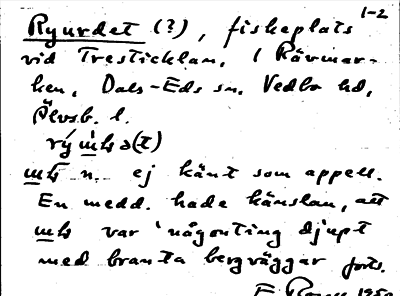 1-2
Ryurdet (?), fiskeplats
vid Tresticklan, i Rävmar-
ken, Dals-Eds sn. Vedbo hd,
Älvsb. l.
n. ej känt som appell.
En medd. hade känslan, att
var 'någonting djupt
med branta bergväggar forts.